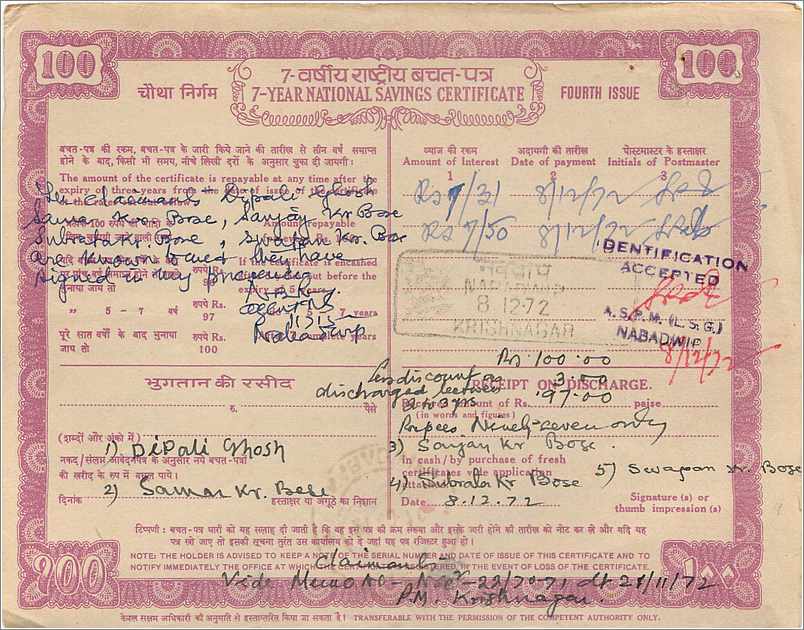 100 100
७-वर्षीय राष्ट्रीय बचत-पत्र
चौथा निर्गम 7-YEAR NATIONAL SAVINGS CERTIFICATE FOURTH ISSUE
बचत-पत्र की रकम, बचत-पत्र के जारी किये जाने की तारीख से तीन वर्ष समाप्त
होने के बाद, किसी भी समय, नीचे लिखी दरों के अनुसार चुका दी जायगी:
The amount of the certificate is repayable at any time after the
expiry of three years from the date of issue of
The claimants Dipali Ghosh
Samar Kr. Bose, Sanjay Kr Bose
Amount repayable
Subrata Kr Bose, Swapan Kr. Bose
are known to me & they have
if the certificate is encashed
signed in my presence
but before the
भुनाया जाय तो
" 5 - 7 वर्ष रुपये Rs. 97 7 years
पूरे सात वर्षों के बाद भुनाया रुपये Rs. complete years
जाय तो 100
ब्याज की रकम अदायगी की तारीख पोस्टमास्टर के हस्ताक्षर
Amount of Interest Date of payment Initials of Postmaster
1 2 3
Rs 7/31 8/12/72
Rs 7/50 8/12/72
IDENTIFICATION
ACCEPTED
नवद्वीप
NABADWIP
8 12-72
KRISHNAGAR
A.S.P.M. (L.S.G.)
NABADWIP
8/12/72
Rs. 100.00
Less discount on 3.00
discharged 97.00
भुगतान की रसीद RECEIPT ON DISCHARGE.
रु. पैसे
Amount of Rs. paise
(in words and figures)
Rupees Ninety-seven only
(शब्दों और अंको में)
1) Dipali Ghosh
3) Sanjay Kr Bose.
नकद/संलग्न आवेदनपत्र के अनुसार नये बचत-पत्रों
की खरीद के रूप में वसूल पाये।
In cash/by purchase of fresh
certificates vide application
5) Swapan Kr. Bose
2) Samar Kr. Bose
4) Subrata Kr Bose
दिनांक हस्ताक्षर या अंगूठे का निशान
Date 8.12.72
Signature (s) or
thumb impression (s)
टिप्पणी : बचत-पत्र धारी को यह सलाह दी जाती है कि वह इस पत्र की क्रम संख्या और इसके जारी होने की तारीख को नोट कर ले और यदि यह
पत्र खो जाए तो इसकी सूचना तुरंत उस कार्यालय को दे जहां यह पत्र रजिस्टर हुआ हो।
NOTE: THE HOLDER IS ADVISED TO KEEP A NOTE OF THE SERIAL NUMBER AND DATE OF ISSUE OF THIS CERTIFICATE AND TO
NOTIFY IMMEDIATELY THE OFFICE AT WHICH CERTIFICATE REGISTERED IN THE EVENT OF LOSS OF THE CERTIFICATE.
१०० १००
Claimants
Vide Memo No- 22/70-71 dt 21/11/72
P.M. Krishnagar.
केवल सक्षम अधिकारी की अनुमति से हस्तांतरित किया जा सकता है। TRANSFERABLE WITH THE PERMISSION OF THE COMPETENT AUTHORITY ONLY.